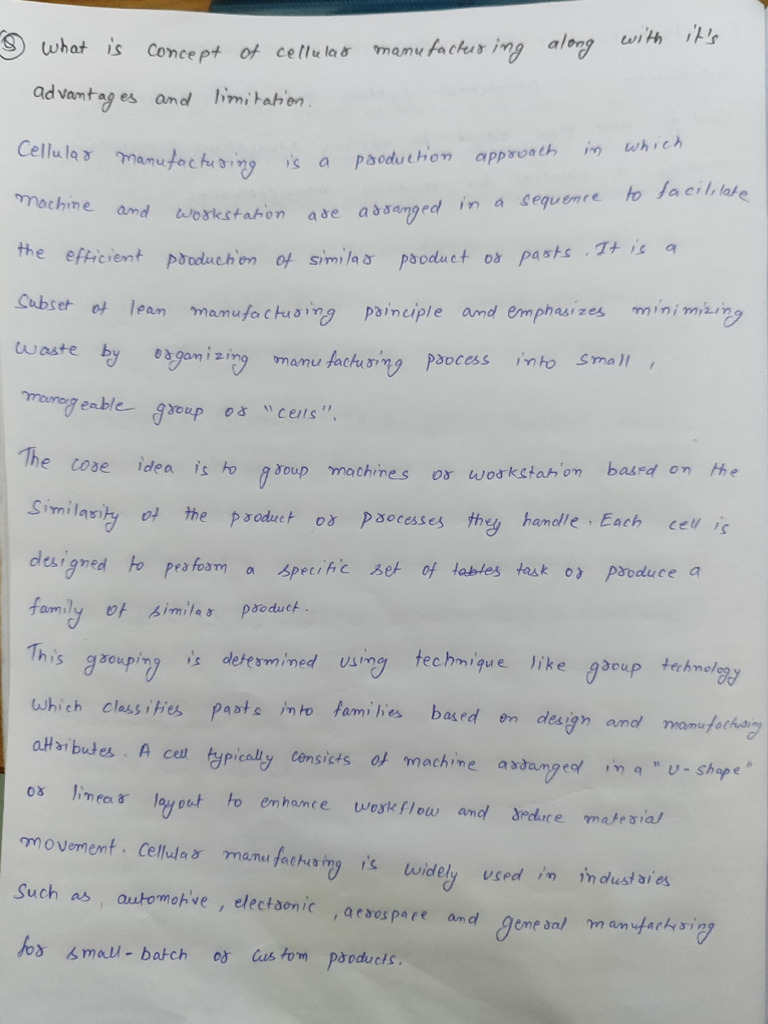 Q What is concept of cellular manufacturing along with it's
advantages and limitation.
Cellular manufacturing is a production approach in which
machine and workstation are arranged in a sequence to facililate
the efficient production of similar product or parts. It is a
Subset of lean manufacturing principle and emphasizes minimizing
waste by organizing manufacturing process into small,
manageable group or "cells".
The core idea is to group machines or workstation based on the
Similarity of the product or processes they handle. Each cell is
designed to perform a specific set of tables task or produce a
family of similar product.
This grouping is determined using technique like group technology
which classifies parts into families based on design and manufacturing
attributes. A cell typically consists of machine arranged in a "U-shape"
or linear layout to enhance workflow and reduce material
movement. Cellular manufacturing is widely used in industries
Such as, automotive, electronic, aerospace and general manufacturing
for small-batch or custom products.